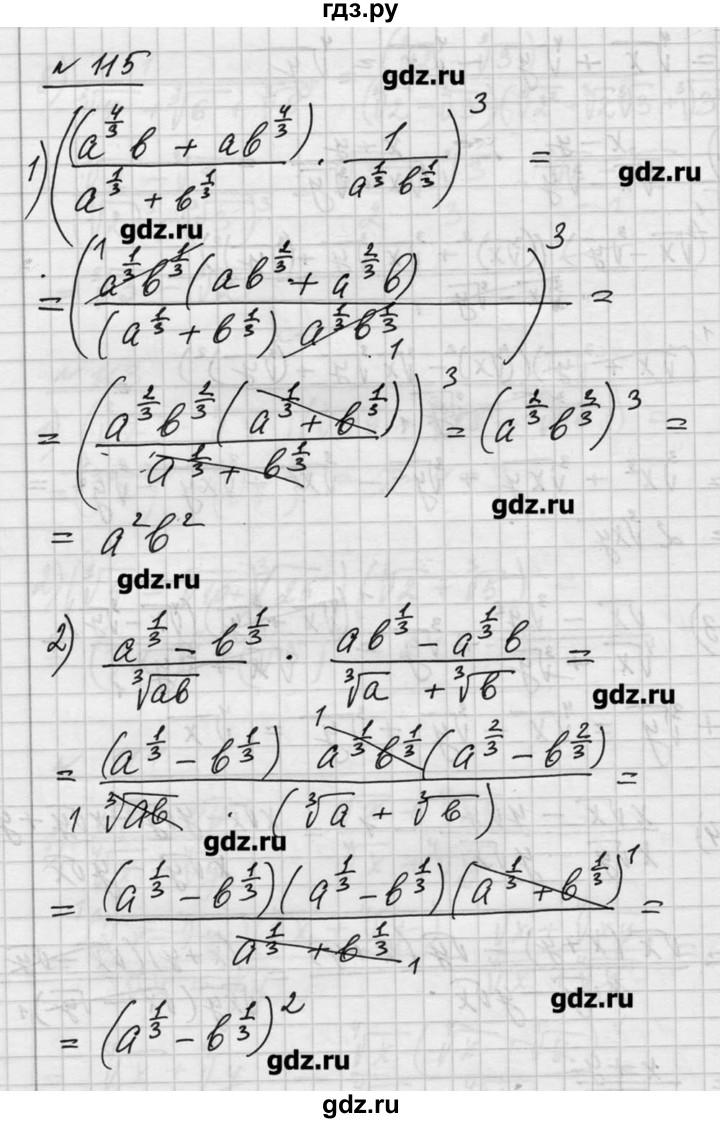 гдз.ру
№ 115
gdz.ru
1) ((a^{4/3} b + ab^{4/3}) / (a^{1/3} + b^{1/3}) · 1 / (a^{1/3} b^{1/3}))^3 =
gdz.ru
gdz.ru
= (a^{1/3} b^{1/3} (ab^{2/3} + a^{2/3} b) / ((a^{1/3} + b^{1/3}) a^{1/3} b^{1/3}))^3 =
= (a^{2/3} b^{2/3} (a^{1/3} + b^{1/3}) / (a^{1/3} + b^{1/3}))^3 = (a^{2/3} b^{2/3})^3 =
gdz.ru
= a^2 b^2
gdz.ru
2) (a^{1/3} − b^{1/3}) / ∛(ab) · (ab^{1/3} − a^{1/3} b) / (∛a + ∛b) =
gdz.ru
= (a^{1/3} − b^{1/3}) a^{1/3} b^{1/3} (a^{2/3} − b^{2/3}) / (∛(ab) · (∛a + ∛b)) =
gdz.ru
= (a^{1/3} − b^{1/3})(a^{1/3} − b^{1/3})(a^{1/3} + b^{1/3}) / (a^{1/3} + b^{1/3}) =
gdz.ru
= (a^{1/3} − b^{1/3})^2
gdz.ru
gdz.ru